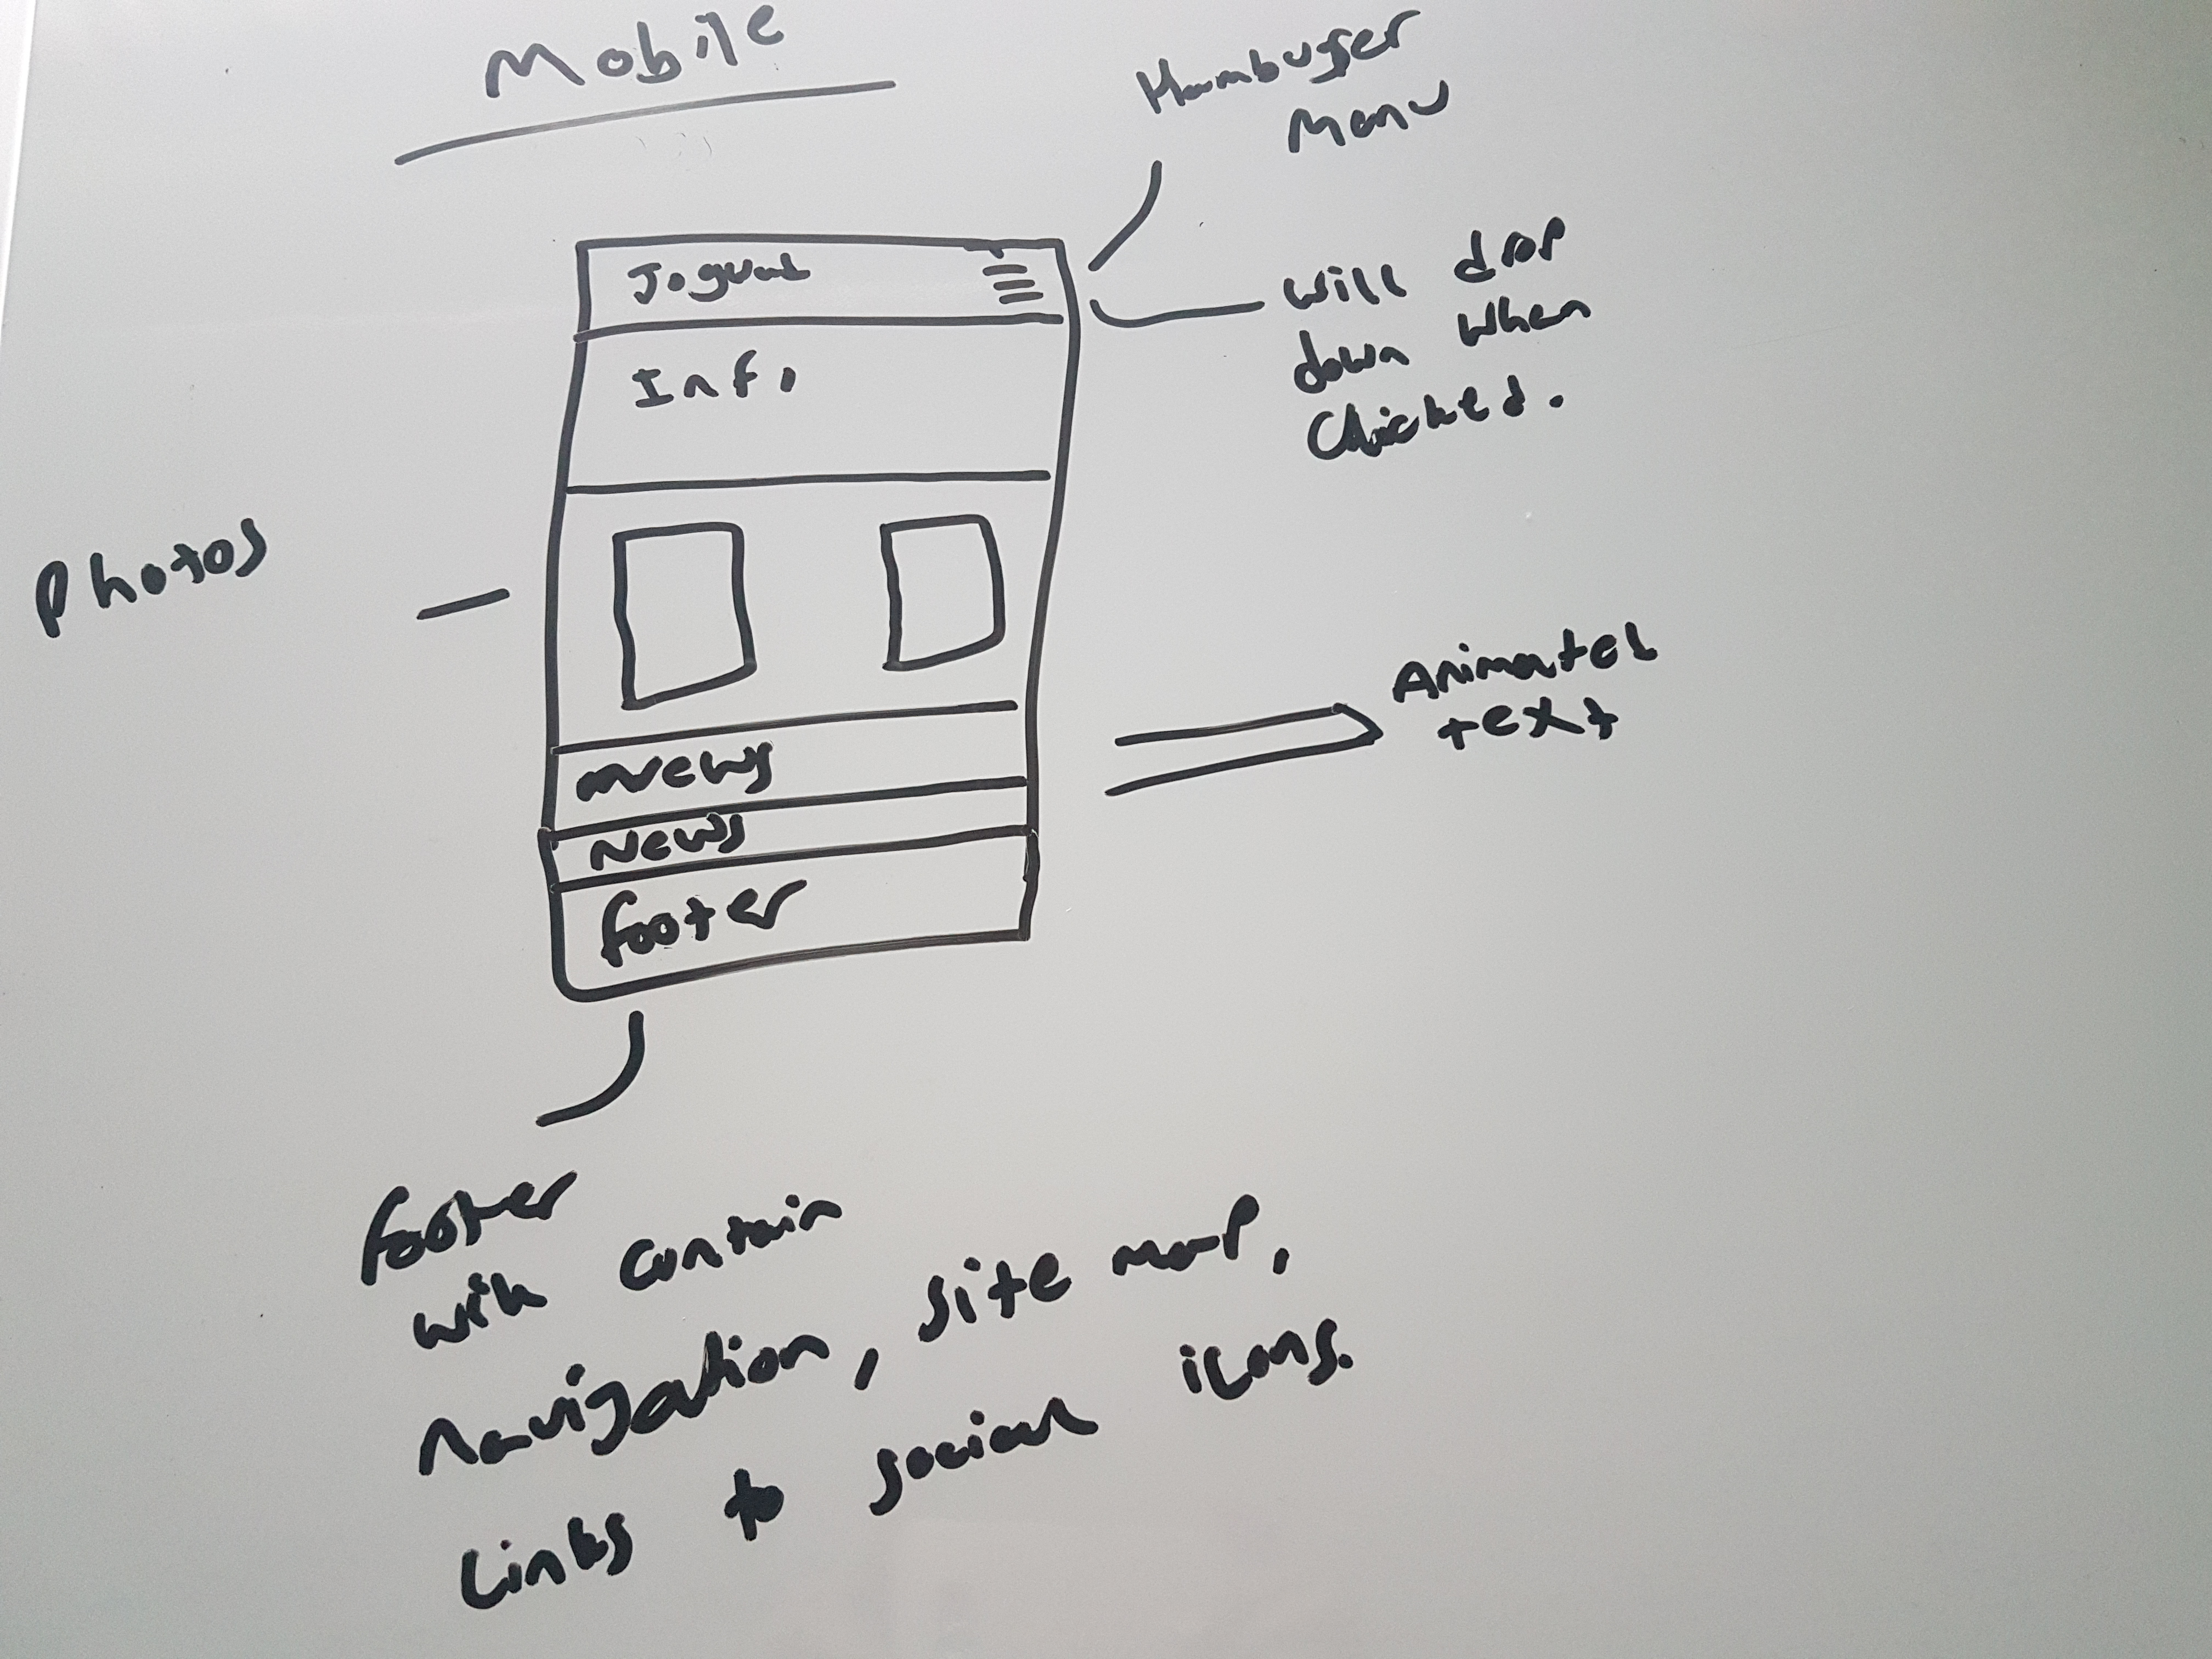 Mobile
Hamburger
Menu
Will drop
down when
Clicked.
Info
Photos
Animated
text
News
News
footer
footer
will contain
navigation, site map,
Links to social icons.